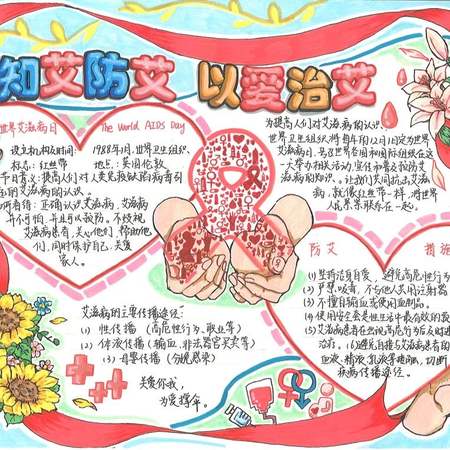 知艾防艾 以爱治艾
世界艾滋病日
The World AIDS Day
设立机构及时间:
1988年1月.世界卫生组织.
标志:红丝带
地点:英国伦敦
节日意义:提高人们对人类免疫缺陷病毒引
艾滋病的认识.
正确认识艾滋病,艾滋病
并不可怕,并且可以救防.不歧视
艾滋病患者,关心他们,帮助他
们,同时保护自己,关爱
家人。
为提高人们对艾滋病的认识,
世界卫生组织将每年的12月1日定为世界
艾滋病日,号召世界各国和国际组织在这
一天举办相关活动,宣传和普及预防艾
滋病的知识。让我们共同抗击艾滋
病,就像红丝带一样,将世
人紧紧联系在一起。
艾滋病的主要传播途径:
(1) 性传播
(2) 体液传播
(3) 母婴传播
关爱你我,
为爱撑伞。
防艾 措施
(1)坚持洁身自爱,
(2)严禁吸毒,不与他人共用注射器
(3)不擅自输血或使用血制品.
(4)使用安全套是性生活中最有效的
治疗。(6)避免直接与艾滋病患者的
血液、精液、乳液等接触,切断
疾病传播途径。